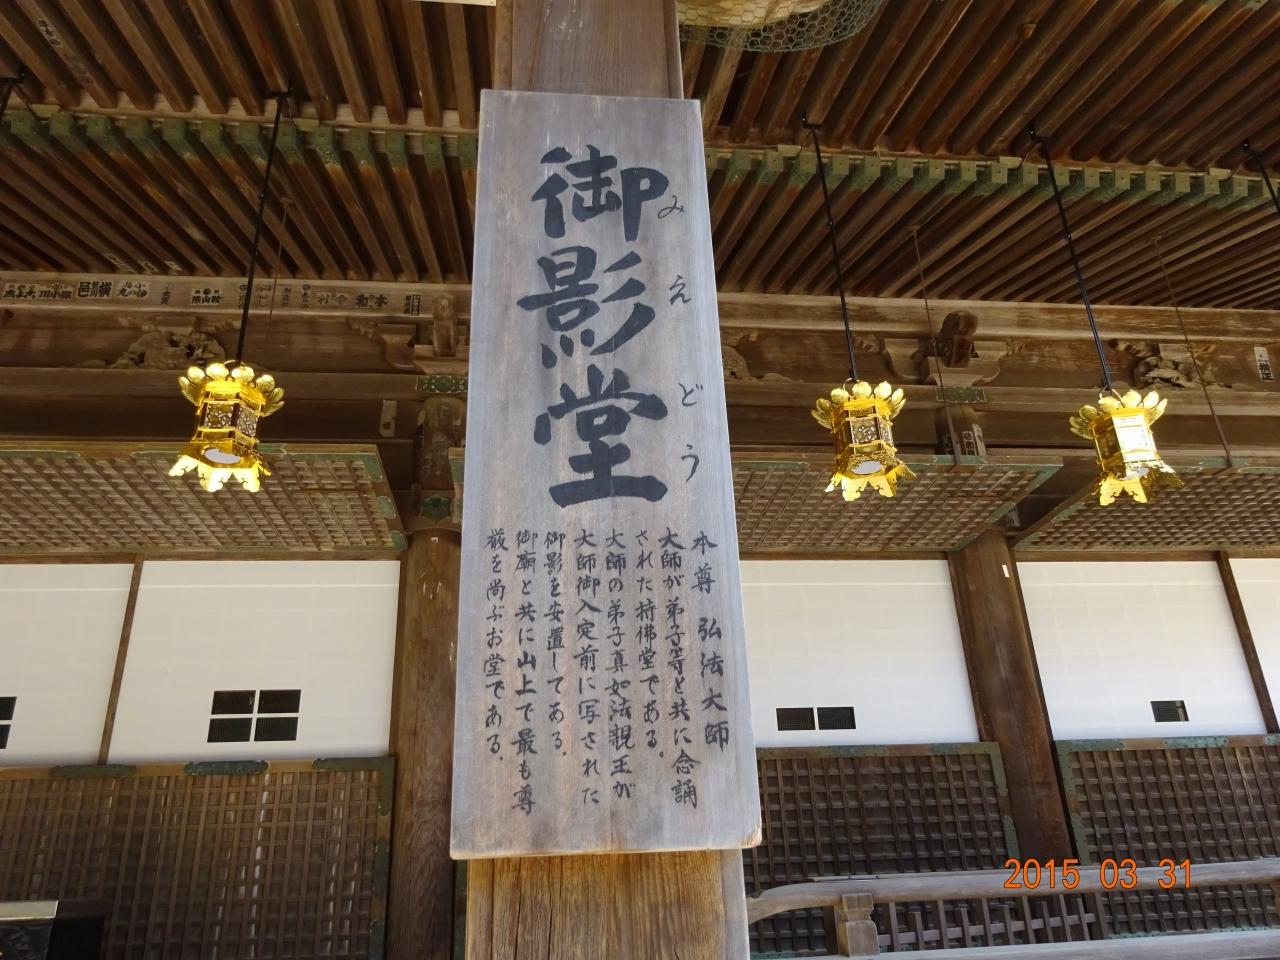 御影堂
みえどう
本尊 弘法大師
大師が弟子等と共に念誦
された持佛堂である。
大師の弟子真如法親王が
大師御入定前に写された
御影を安置してある。
御廟と共に山上で最も尊
厳を尚ぶお堂である。
2015 03 31